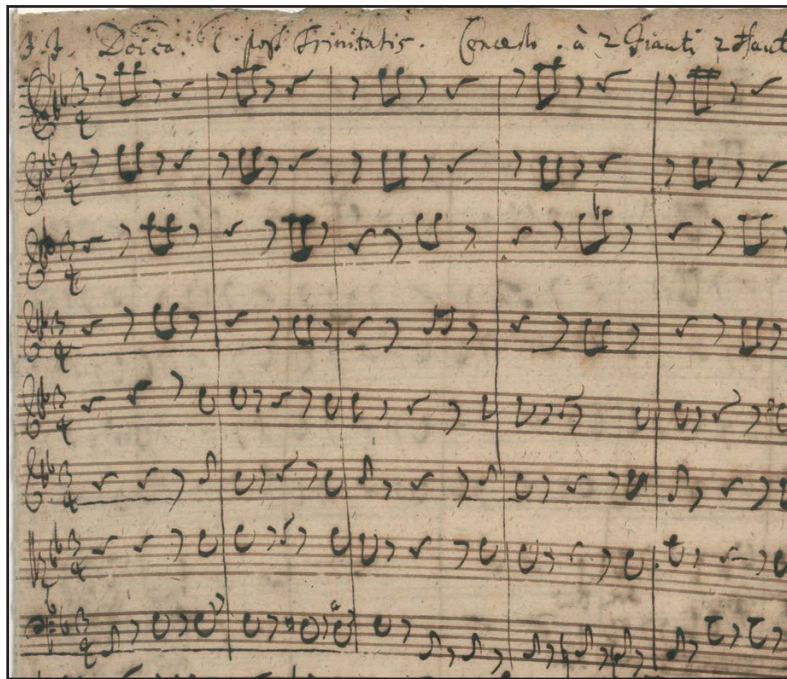 J. J. Doica. post Trinitatis. Concerto. à 2 Fiauti 2 Haut